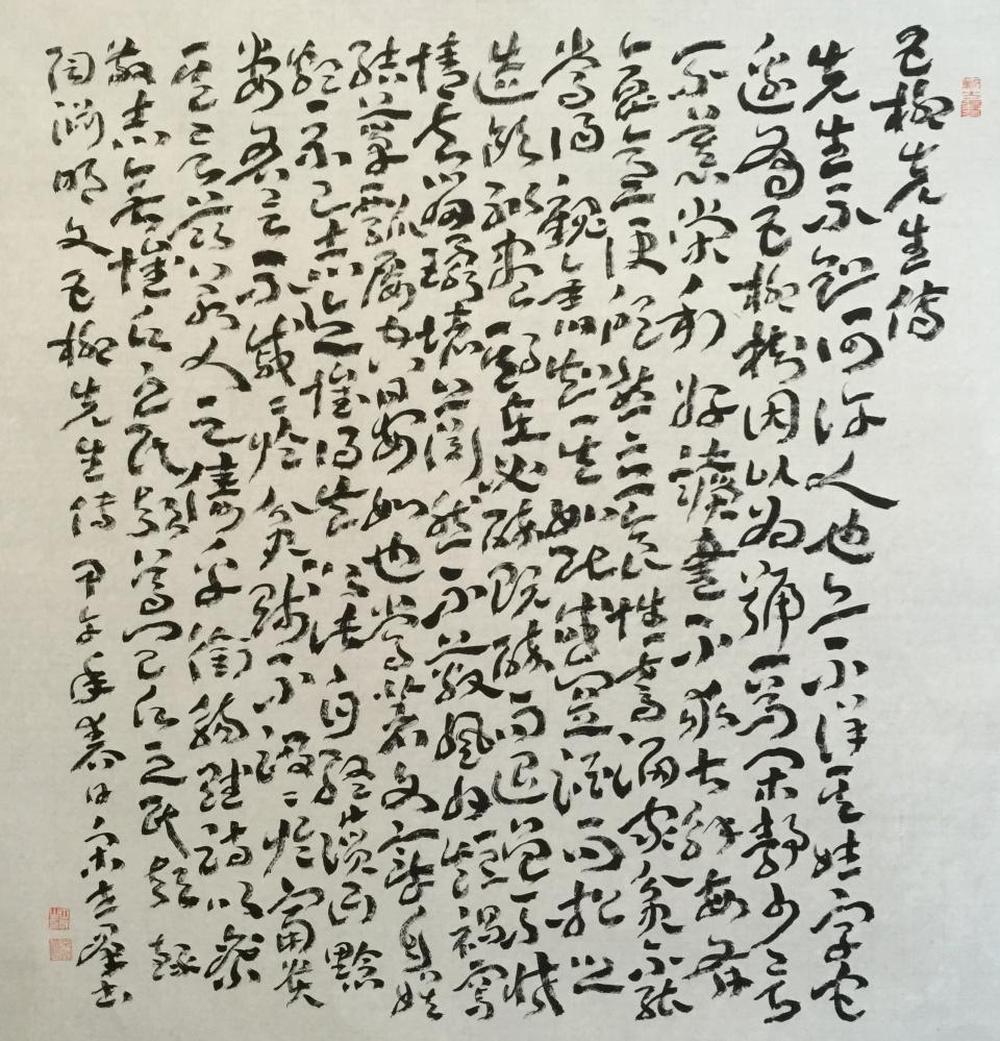 五柳先生傳
先生不知何許人也亦不詳其姓字宅
邊有五柳樹因以為號焉閑靜少言
不慕榮利好讀書不求甚解每有
會意便欣然忘食性嗜酒家貧不能
常得親舊知其如此或置酒而招之
造飲輒盡期在必醉既醉而退曾不吝
情去留環堵蕭然不蔽風日短褐穿
結簞瓢屢空晏如也常著文章自娛
頗示己志忘懷得失以此自終贊曰黔
婁有言不戚戚於貧賤不汲汲於富貴
其言茲若人之儔乎銜觴賦詩以樂
其志無懷氏之民歟葛天氏之民歟
陶淵明文五柳先生傳 甲午年春日宋書